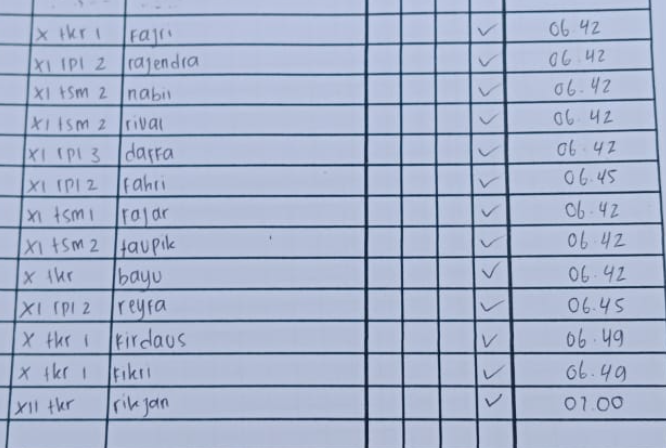 x tkr 1 Fajri ✓ 06.42
x1 rpl 2 rajendra ✓ 06.42
x1 tsm 2 nabil ✓ 06.42
x1 tsm 2 rival ✓ 06.42
x1 rpl 3 daffa ✓ 06.42
x1 rpl 2 Fahri ✓ 06.45
x1 tsm 1 Fajar ✓ 06.42
x1 tsm 2 taupik ✓ 06.42
x tkr bayu ✓ 06.42
x1 rpl 2 reyfa ✓ 06.45
x tkr 1 Firdaus ✓ 06.49
x tkr 1 Fikri ✓ 06.49
x11 tkr rikjan ✓ 07.00